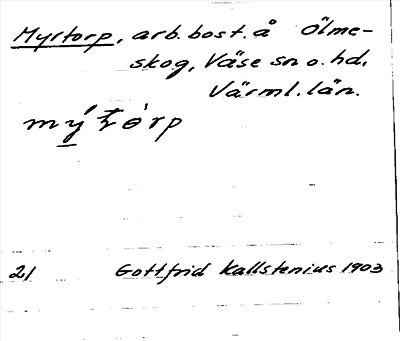 Myrtorp, arb. bost. å Ölme-
skog, Väse sn o. hd,
Värml. län.
21 Gottfrid Kallstenius 1903